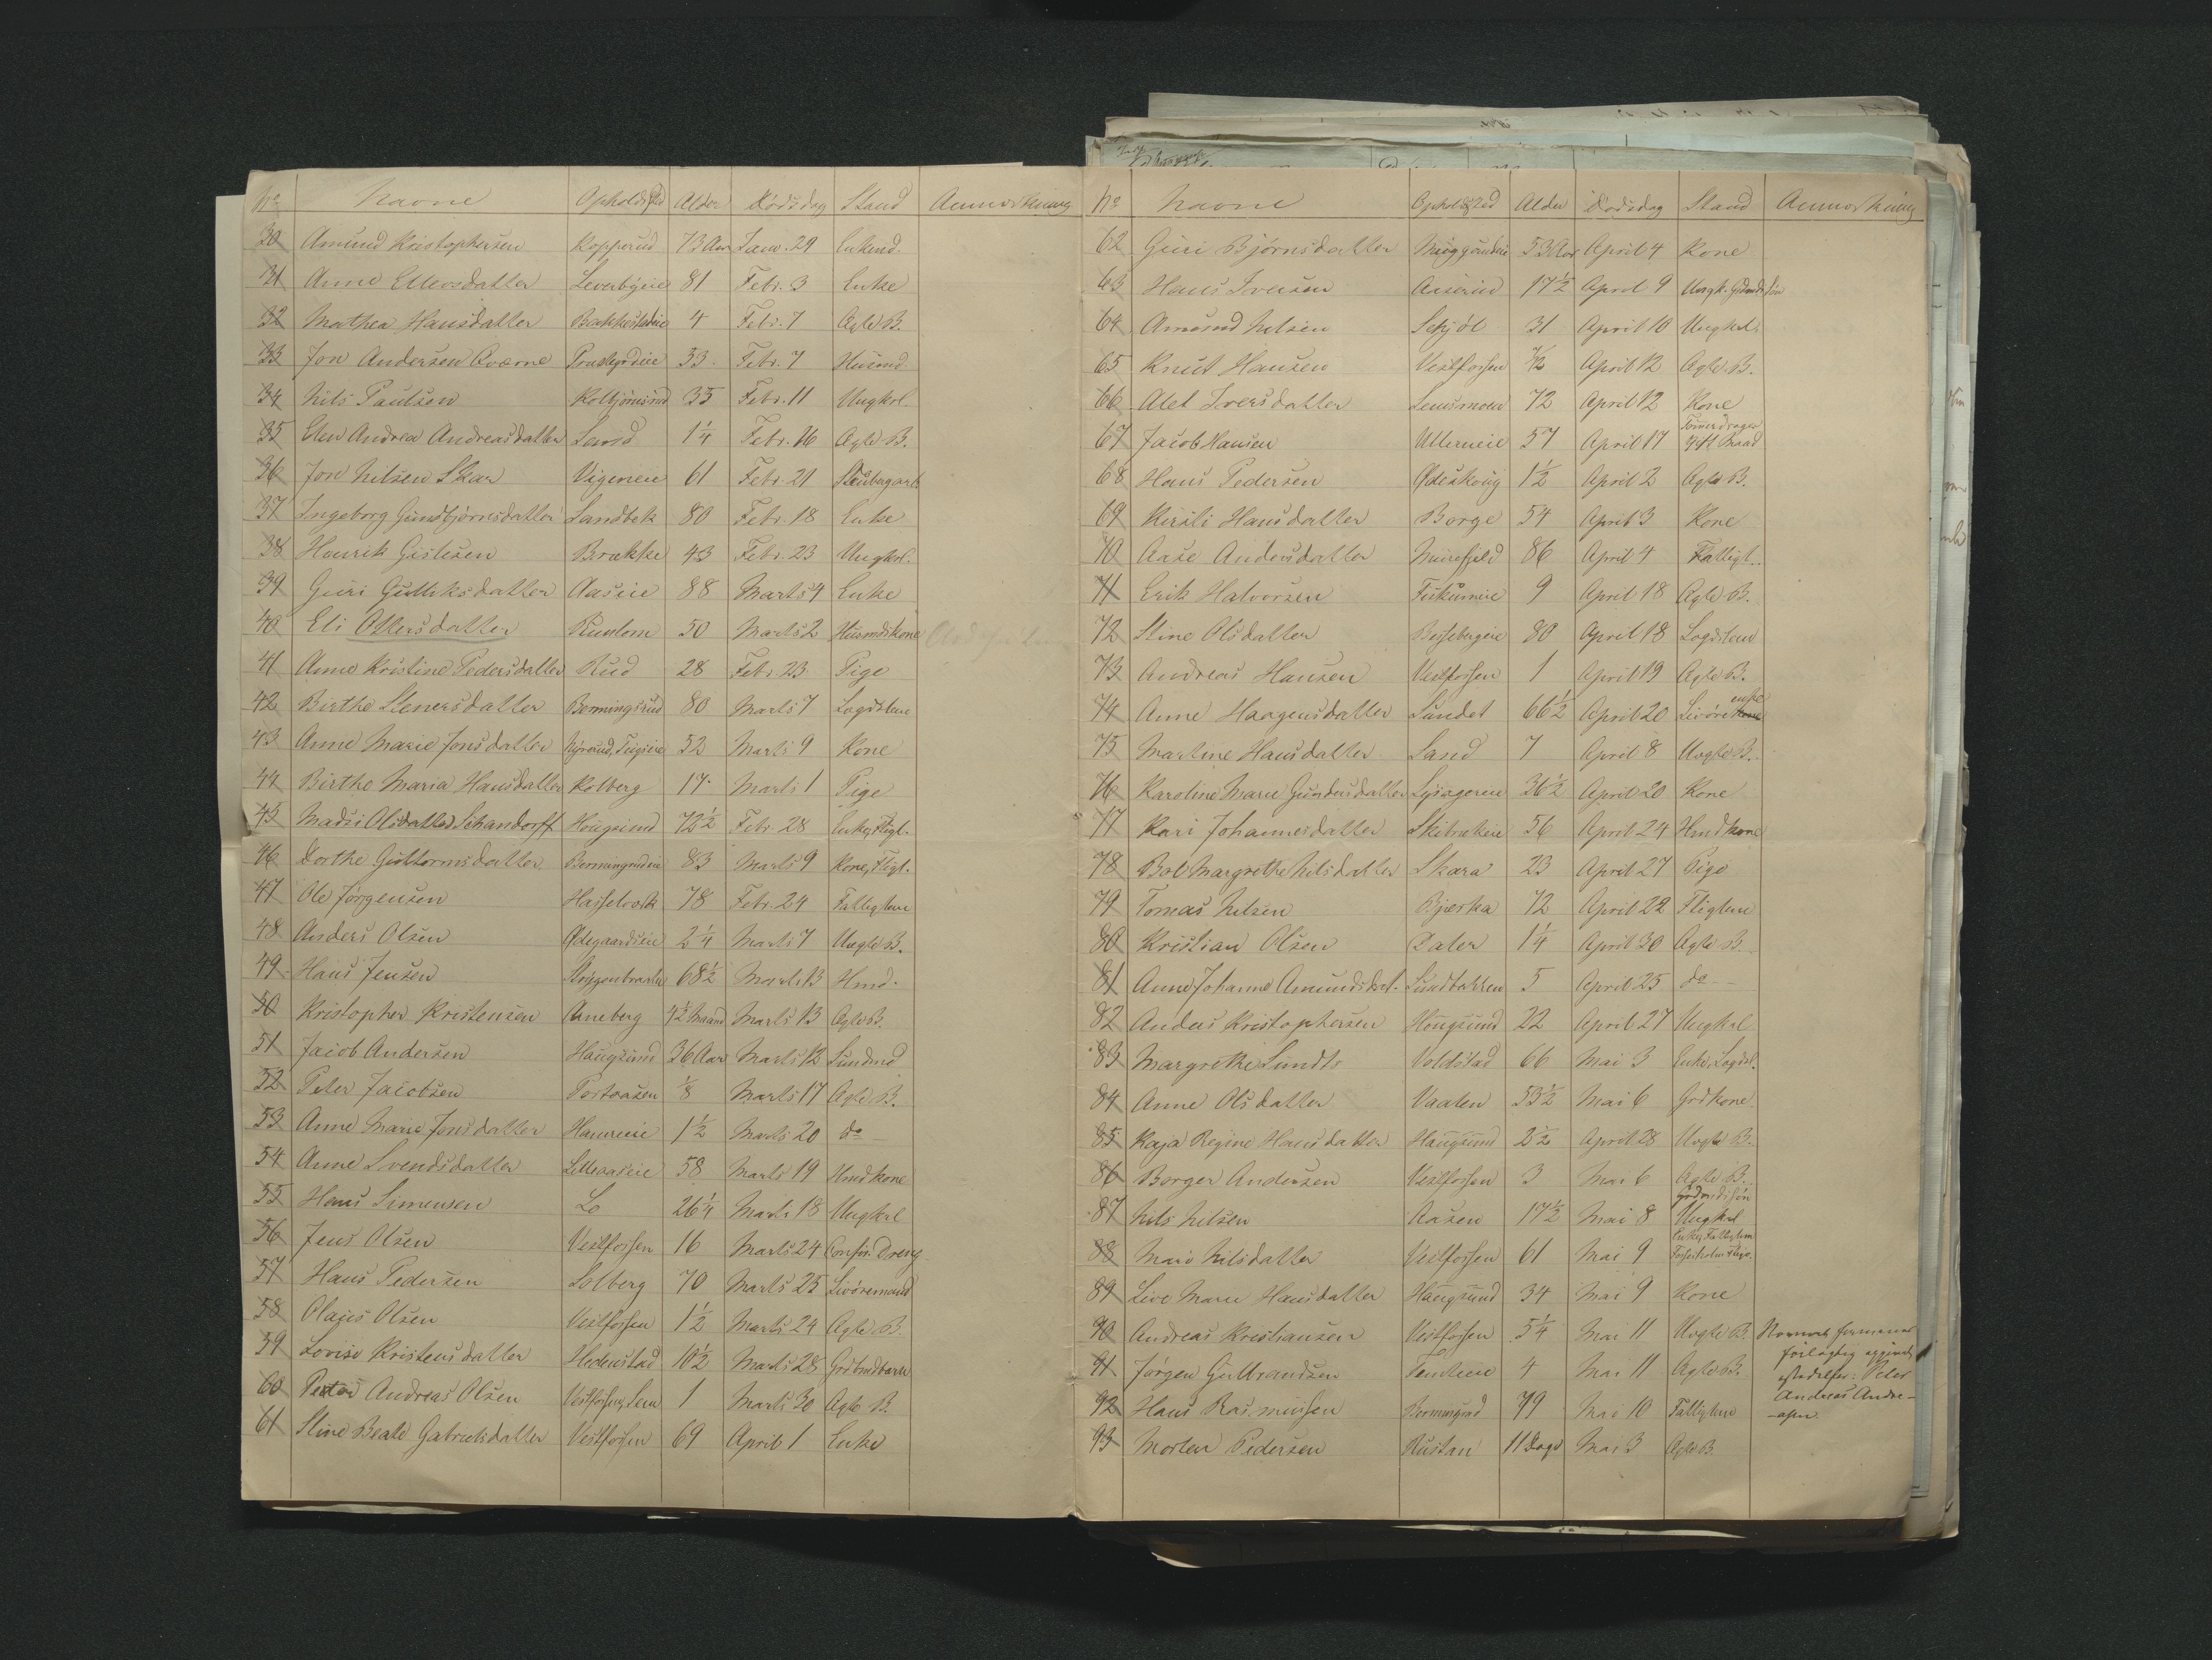 No Navne Opholdssted Alder Dødsdag Stand Anmærkning
30 Amund Kristophersen Kopperud 73 Aar Janu. 29 Enkemd.
31 Anne Ellevsdatter Leverbyeie 81 Febr. 3 Enke
32 Mathea Hansdatter Bakkestadeie 4 Febr. 7 Ægte B.
33 Jon Andersen Qværne 53 Febr. 7 Husmd
34 Nils Paulsen Kolbjørnsrud 35 Febr. 11 Ungkrl.
35 Elen Andrea Andreasdatter Sand 1 1/4 Febr. 16 Ægte B.
36 Jon Nilsen Skar 61 Febr. 21
37 Ingeborg Gundbjørnsdatter Sandbek 80 Febr. 18 Enke
38 Henrik Gislesen Brække 43 Febr. 23 Ungkrl.
39 Guri Gulliksdatter Aaseie 88 Marts 4 Enke
40 Eli Ottersdatter 50 Marts 2 Husmdskone
41 Anne Kristine Pedersdatter Rud 28 Febr. 23 Pige
42 Birthe Stenersdatter Bermingrud 80 Marts 7 Logdslem
43 Anne Marie Jonsdatter 52 Marts 9 Kone
44 Birthe Maria Hansdatter Kolberg 17 Marts 1 Pige
45 Madsi Olsdatter Schandorff Hougsund 72 1/2 Febr. 28 Enke, Fligl.
46 Dorthe Guttormsdatter Bermingrudeie 83 Marts 9 Kone, Fligl.
47 Ole Jørgensen Hasselvosk 78 Febr. 24 Fattiglem
48 Anders Olsen Ødegaardseie 2 1/4 Marts 7 Uægte B.
49 Hans Jensen 68 1/2 Marts 13 Hmd.
50 Kristopher Kristensen Arneberg 4 1/2 Maand Marts 13 Ægte B.
51 Jacob Andersen Haugsund 36 Aar Marts 12
52 Peter Jacobsen 1/8 Marts 17 Ægte B.
53 Anne Marie Jonsdatter 1 1/2 Marts 20 do
54 Anne Svendsdatter Lilleaaseie 58 Marts 19 Hmdkone
55 Hans Simensen Lo 26 1/4 Marts 18 Ungkrl
56 Jens Olsen Vestfossen 16 Marts 24 Confir. Dreng
57 Hans Pedersen Solberg 70 Marts 25 Livøremand
58 Olaus Olsen Vestfossen 1 1/2 Marts 24 Ægte B.
59 Lovise Kristensdatter Hedenstad 10 1/2 Marts 28 Grdbrudbarn
60 Peter Andreas Olsen Vestfossen, Sem 1 Marts 30 Ægte B.
61 Stine Beate Gabrielsdatter Vestfossen 69 April 1 Enke
No Navne Opholdssted Alder Dødsdag Stand Anmærkning
62 Guri Bjørnsdatter 53 Aar April 4 Kone
63 Hans Iversen 17 1/2 April 9 Ungk. Grdmdssøn
64 Amund Nilsen 31 April 10 Ungkrl.
65 Knut Hansen Vestfossen 7/12 April 12 Ægte B.
66 Alet Iversdatter Semsmoen 72 April 12 Kone
67 Jacob Hansen Ullerneie 57 April 17
68 Hans Pedersen Ødeskoug 1 1/2 April 2 Ægte B.
69 Kirsti Hansdatter Borge 54 April 3 Kone
70 Aase Andersdatter 86 April 4 Fattigl.
71 Erik Halvorsen Fiskumeie 9 April 18 Ægte B.
72 Stine Olsdatter Bessebergeie 80 April 18 Logdslem
73 Andreas Hansen Vestfossen 1 April 19 Ægte B.
enke
74 Anne Haagensdatter Sundet 66 1/2 April 20 Livørekone
75 Martine Hansdatter Sand 7 April 8 Uægte B.
76 Karoline Marie Gundersdatter 36 1/2 April 20 Kone
77 Kari Johannesdatter 56 April 24 Hmdkone
78 Bol Margrethe Nilsdatter Skara 23 April 27 Pige
79 Tomas Nilsen Bjerka 72 April 22 Fliglem
80 Kristian Olsen Daler 1 1/4 April 30 Ægte B.
81 Anne Johanne Amundsdat. Sundbakken 5 April 25 do
82 Anders Kristophersen Hougsund 22 April 27 Ungkrl
83 Margrethe Sundts Voldstad 66 Mai 3 Enke, Logdsl.
84 Anne Olsdatter Vaalen 53 1/2 Mai 6 Grdkone
85 Kaja Regine Hansdatter Haugsund 2 1/2 April 28 Uægte B.
86 Borger Andersen Vestfossen 3 Mai 6 Ægte B.
Grdmdssøn
87 Nils Nilsen Aasen 17 1/2 Mai 8 Ungkrl
Enke, Fattiglem
88 Mari Nilsdatter Vestfossen 61 Mai 9
89 Live Marie Hansdatter Haugsund 34 Mai 9 Kone
90 Andreas Kristiansen Vestfossen 5 1/4 Mai 11 Uægte B.
91 Jørgen Gulbrandsen 4 Mai 11 Ægte B.
92 Hans Rasmussen Bermingrud 79 Mai 10 Fattiglem
93 Morten Pedersen Rustan 11 Dage Mai 3 Ægte B.
urigtig opgivet
istedetfor: Peter
Andreas Andre-
-asen.